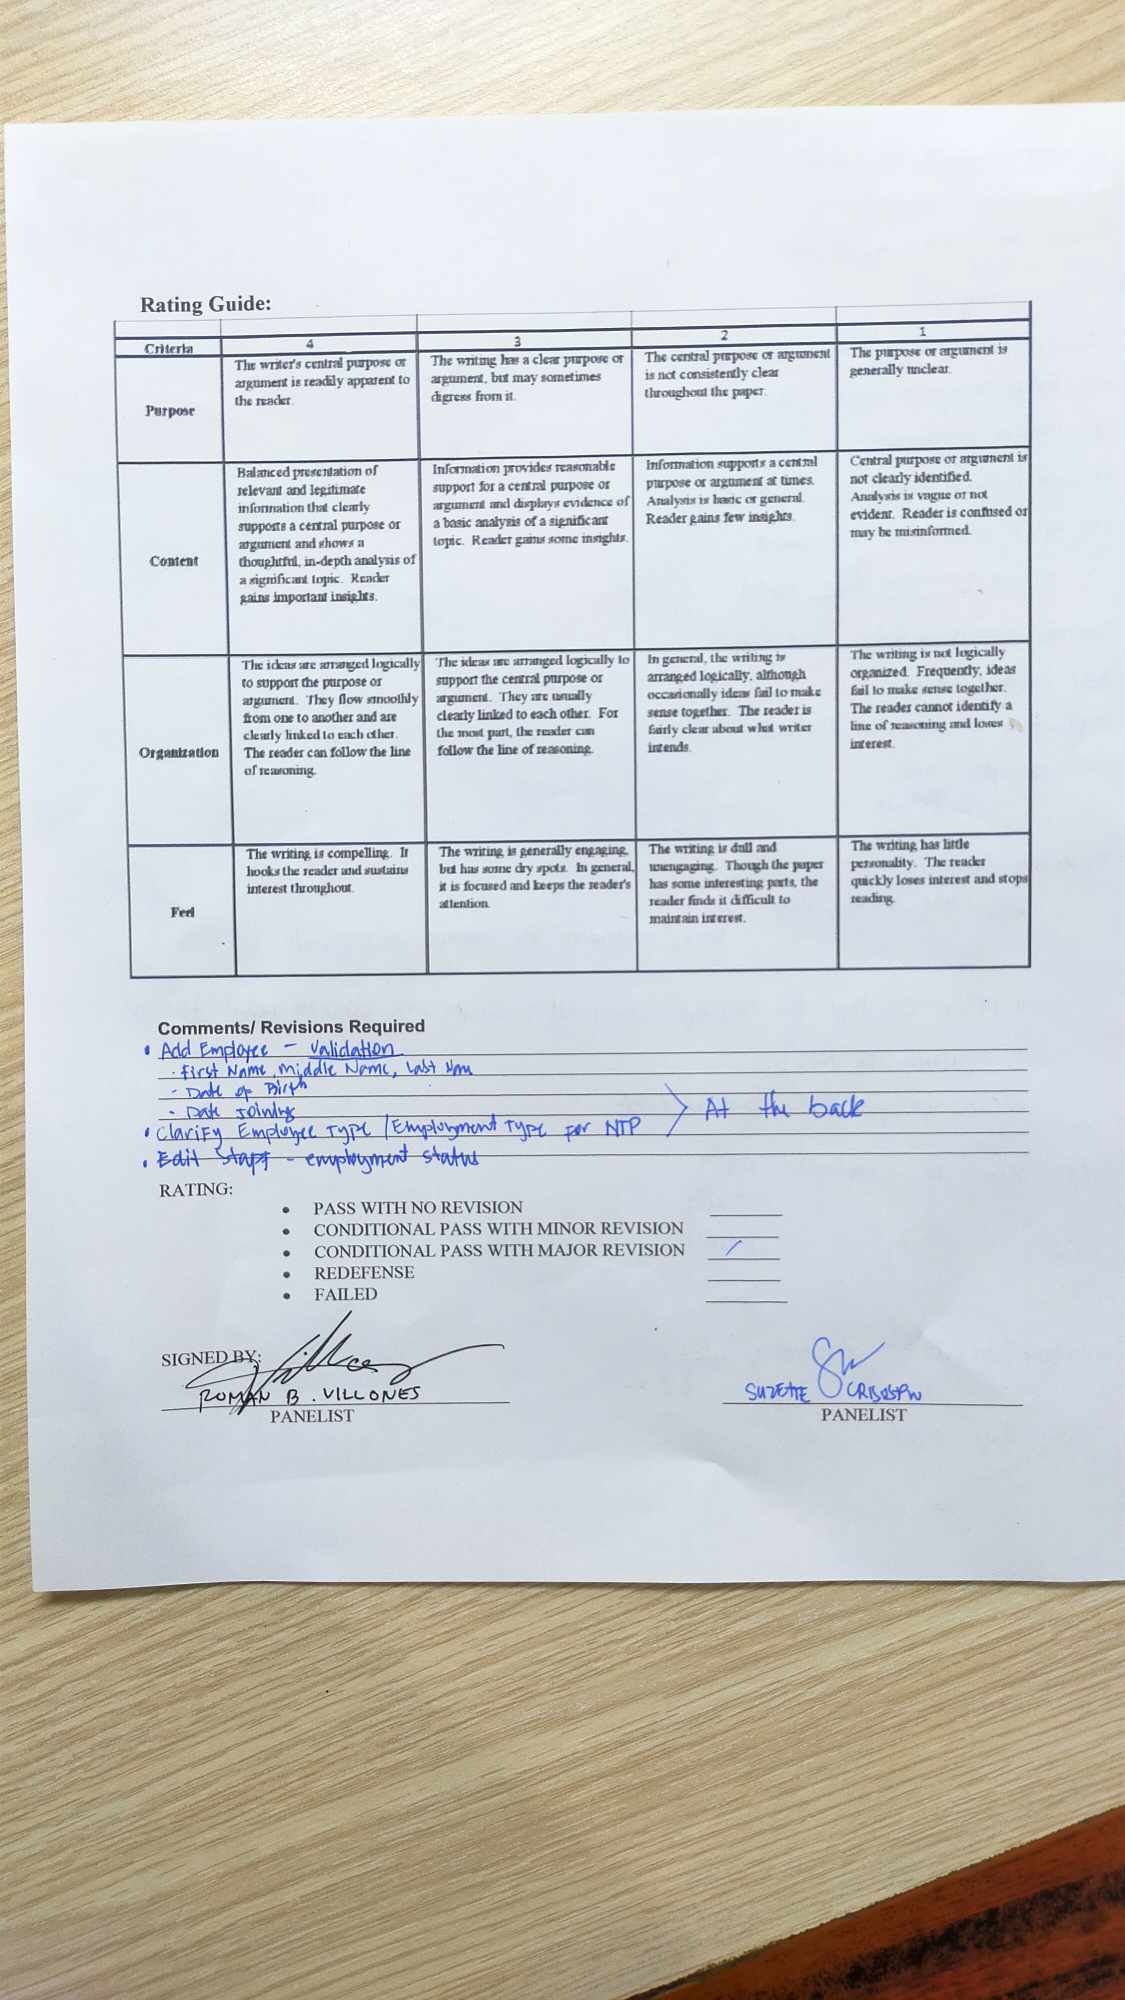 Rating Guide:
Criteria 4 3 2 1
Purpose
The writer's central purpose or
argument is readily apparent to
the reader.
The writing has a clear purpose or
argument, but may sometimes
digress from it.
The central purpose or argument
is not consistently clear
throughout the paper.
The purpose or argument is
generally unclear.
Content
Balanced presentation of
relevant and legitimate
information that clearly
supports a central purpose or
argument and shows a
thoughtful, in-depth analysis of
a significant topic. Reader
gains important insights.
Information provides reasonable
support for a central purpose or
argument and displays evidence of
a basic analysis of a significant
topic. Reader gains some insights.
Information supports a central
purpose or argument at times.
Analysis is basic or general.
Reader gains few insights.
Central purpose or argument is
not clearly identified.
Analysis is vague or not
evident. Reader is confused or
may be misinformed.
Organization
The ideas are arranged logically
to support the purpose or
argument. They flow smoothly
from one to another and are
clearly linked to each other.
The reader can follow the line
of reasoning.
The ideas are arranged logically to
support the central purpose or
argument. They are usually
clearly linked to each other. For
the most part, the reader can
follow the line of reasoning.
In general, the writing is
arranged logically, although
occasionally ideas fail to make
sense together. The reader is
fairly clear about what writer
intends.
The writing is not logically
organized. Frequently, ideas
fail to make sense together.
The reader cannot identify a
line of reasoning and loses
interest.
Feel
The writing is compelling. It
hooks the reader and sustains
interest throughout.
The writing is generally engaging,
but has some dry spots. In general,
it is focused and keeps the reader's
attention.
The writing is dull and
unengaging. Though the paper
has some interesting parts, the
reader finds it difficult to
maintain interest.
The writing has little
personality. The reader
quickly loses interest and stops
reading.
Comments/ Revisions Required
• Add Employee - Validation
- First Name, Middle Name, Last
- Date of Birth
- Date Joining
• Clarify Employee Type / Employment Type for NTP
At the back
• Edit Staff - employment status
RATING:
• PASS WITH NO REVISION
• CONDITIONAL PASS WITH MINOR REVISION
• CONDITIONAL PASS WITH MAJOR REVISION /
• REDEFENSE
• FAILED
SIGNED BY:
ROMAN B. VILLONES
PANELIST
SUZETTE
PANELIST